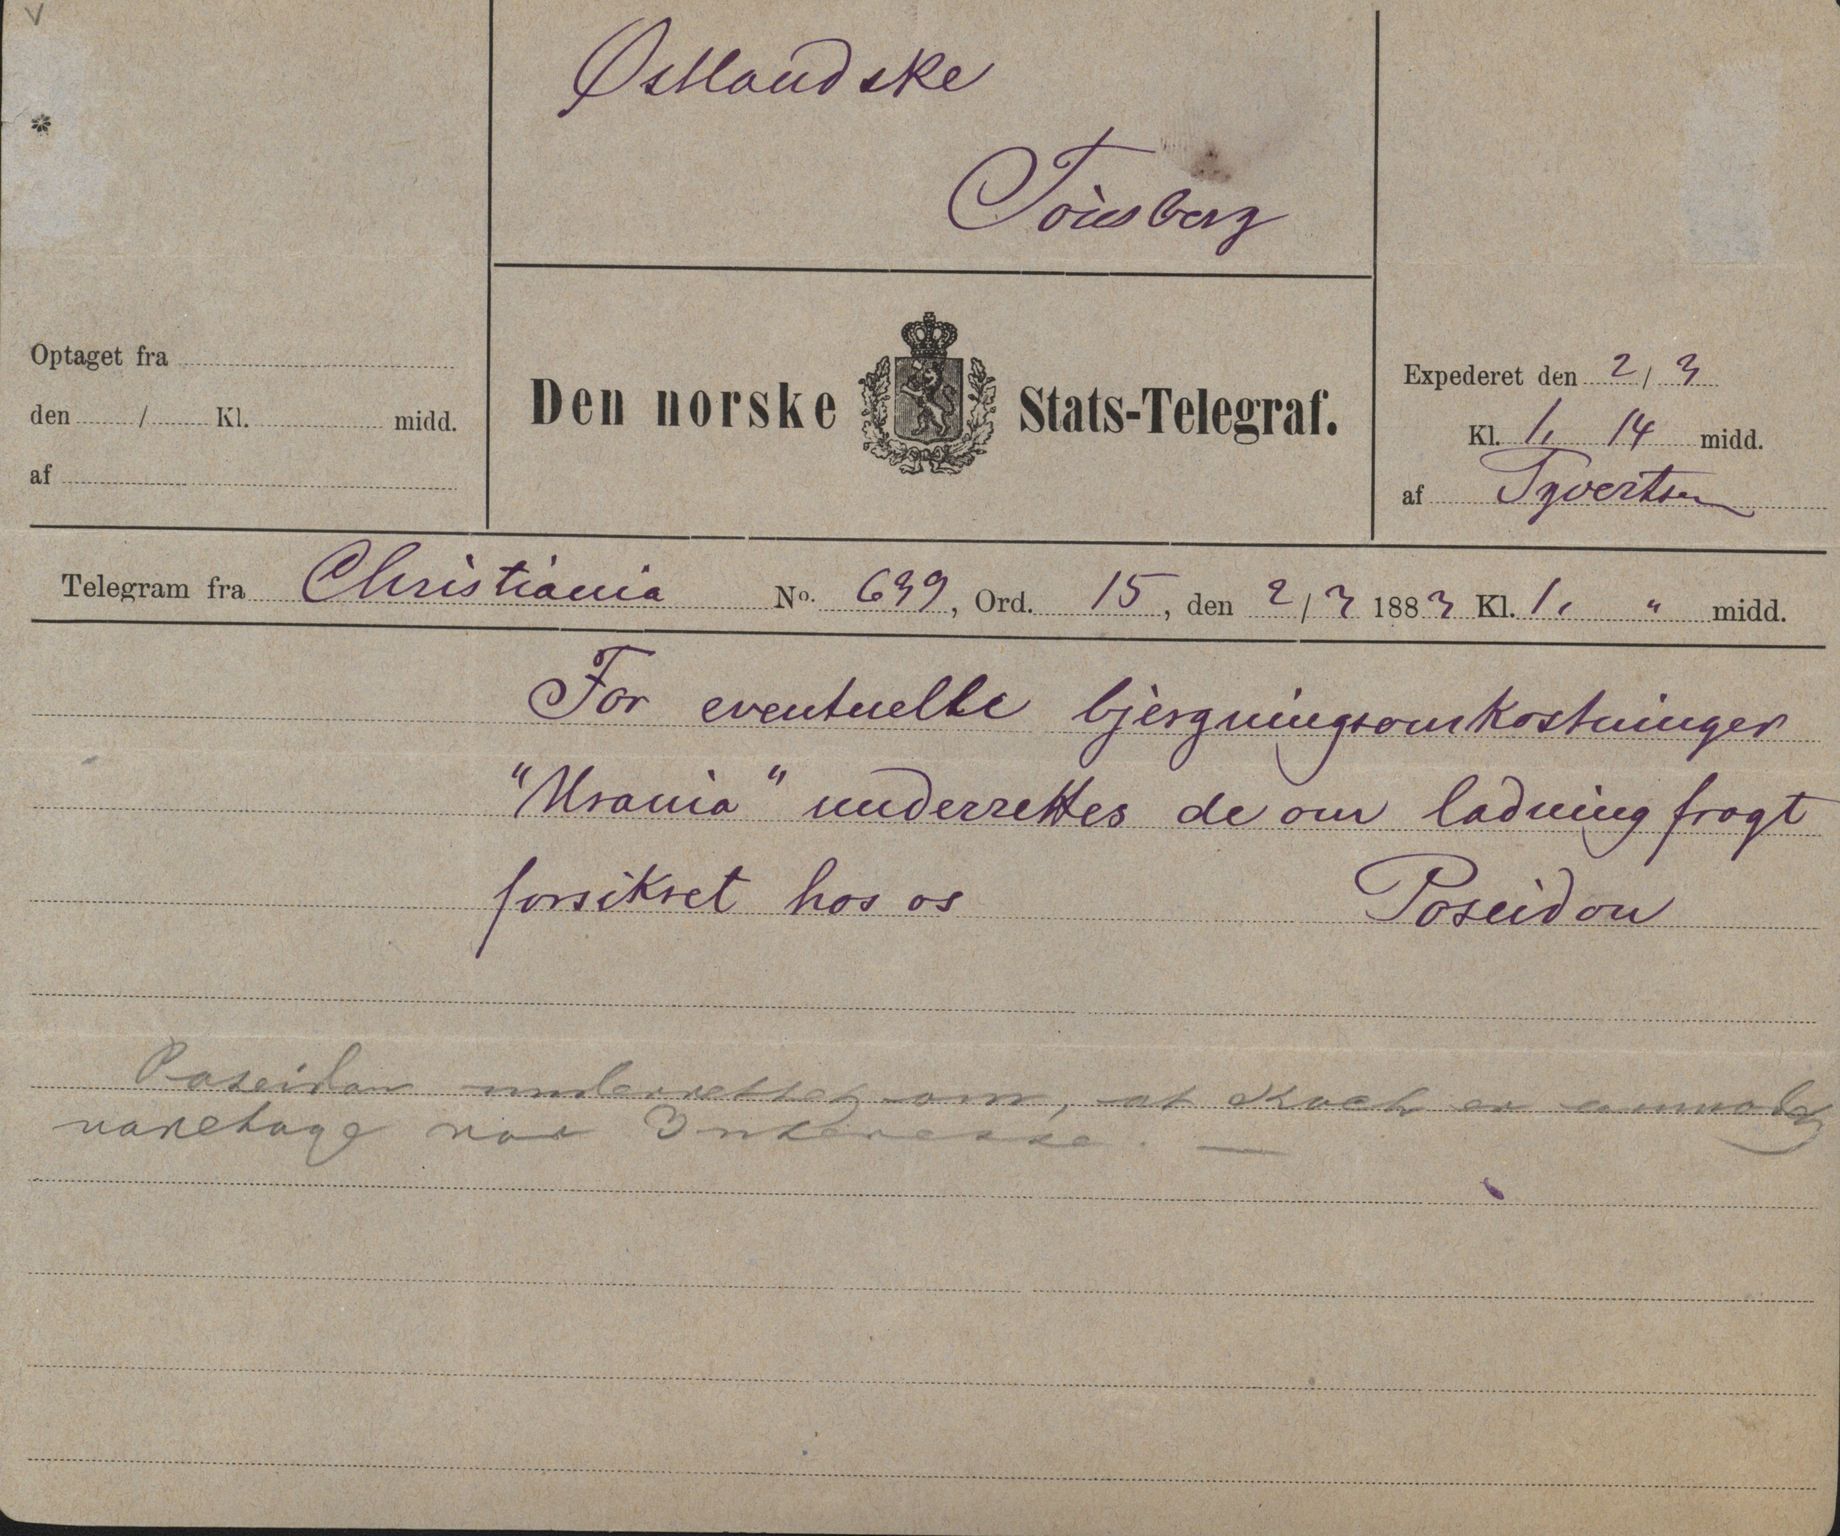 Østlandske
Tönsberg
*
Optaget fra
den / Kl. midd.
af
Den norske Stats-Telegraf.
Expederet den 2/3
Kl. 1, 14 midd.
af
Telegram fra Christiania No. 639, Ord. 15, den 2/3 1883 Kl. 1, " midd.
For eventuelle bjergningsomkostninger
"Urania" underrettes de om ladning fragt
forsikret hos os Poseidon
Poseidon underrettet om, at Koch er anmodet
varetage vor Interesse. —